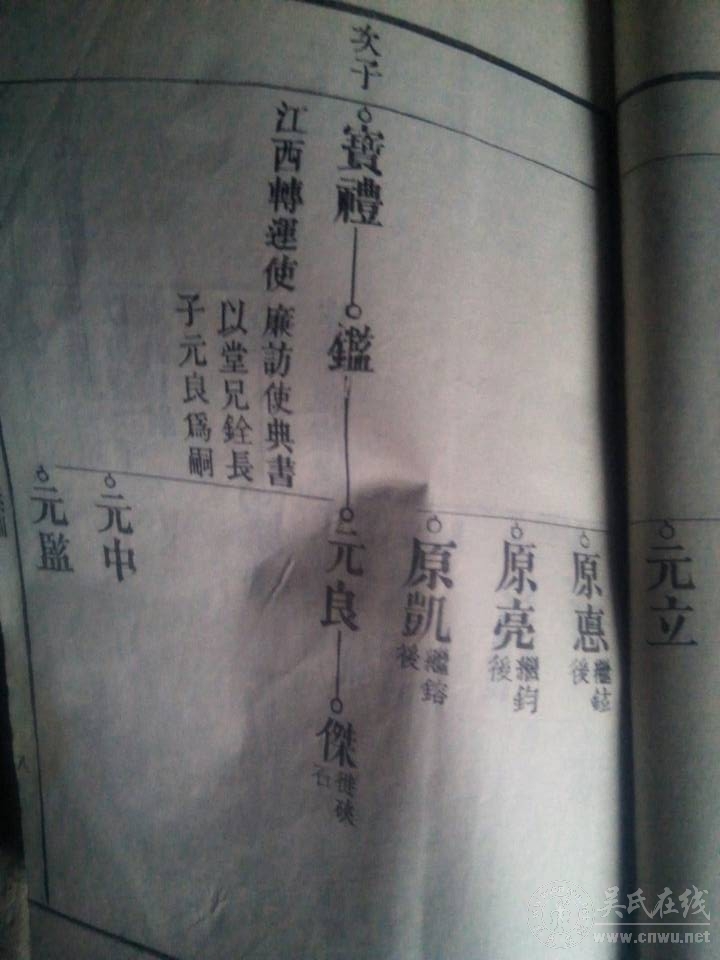 元立
原惪
繼鉉
後
原亮
繼鈞
後
原凱
繼鎔
後
次子
寶禮
鑑
元良
傑
徙硤
石
江西轉運使
廉訪使典書
以堂兄銓長
子元良爲嗣
元中
元監
八
吴氏在线
www.cnwu.net